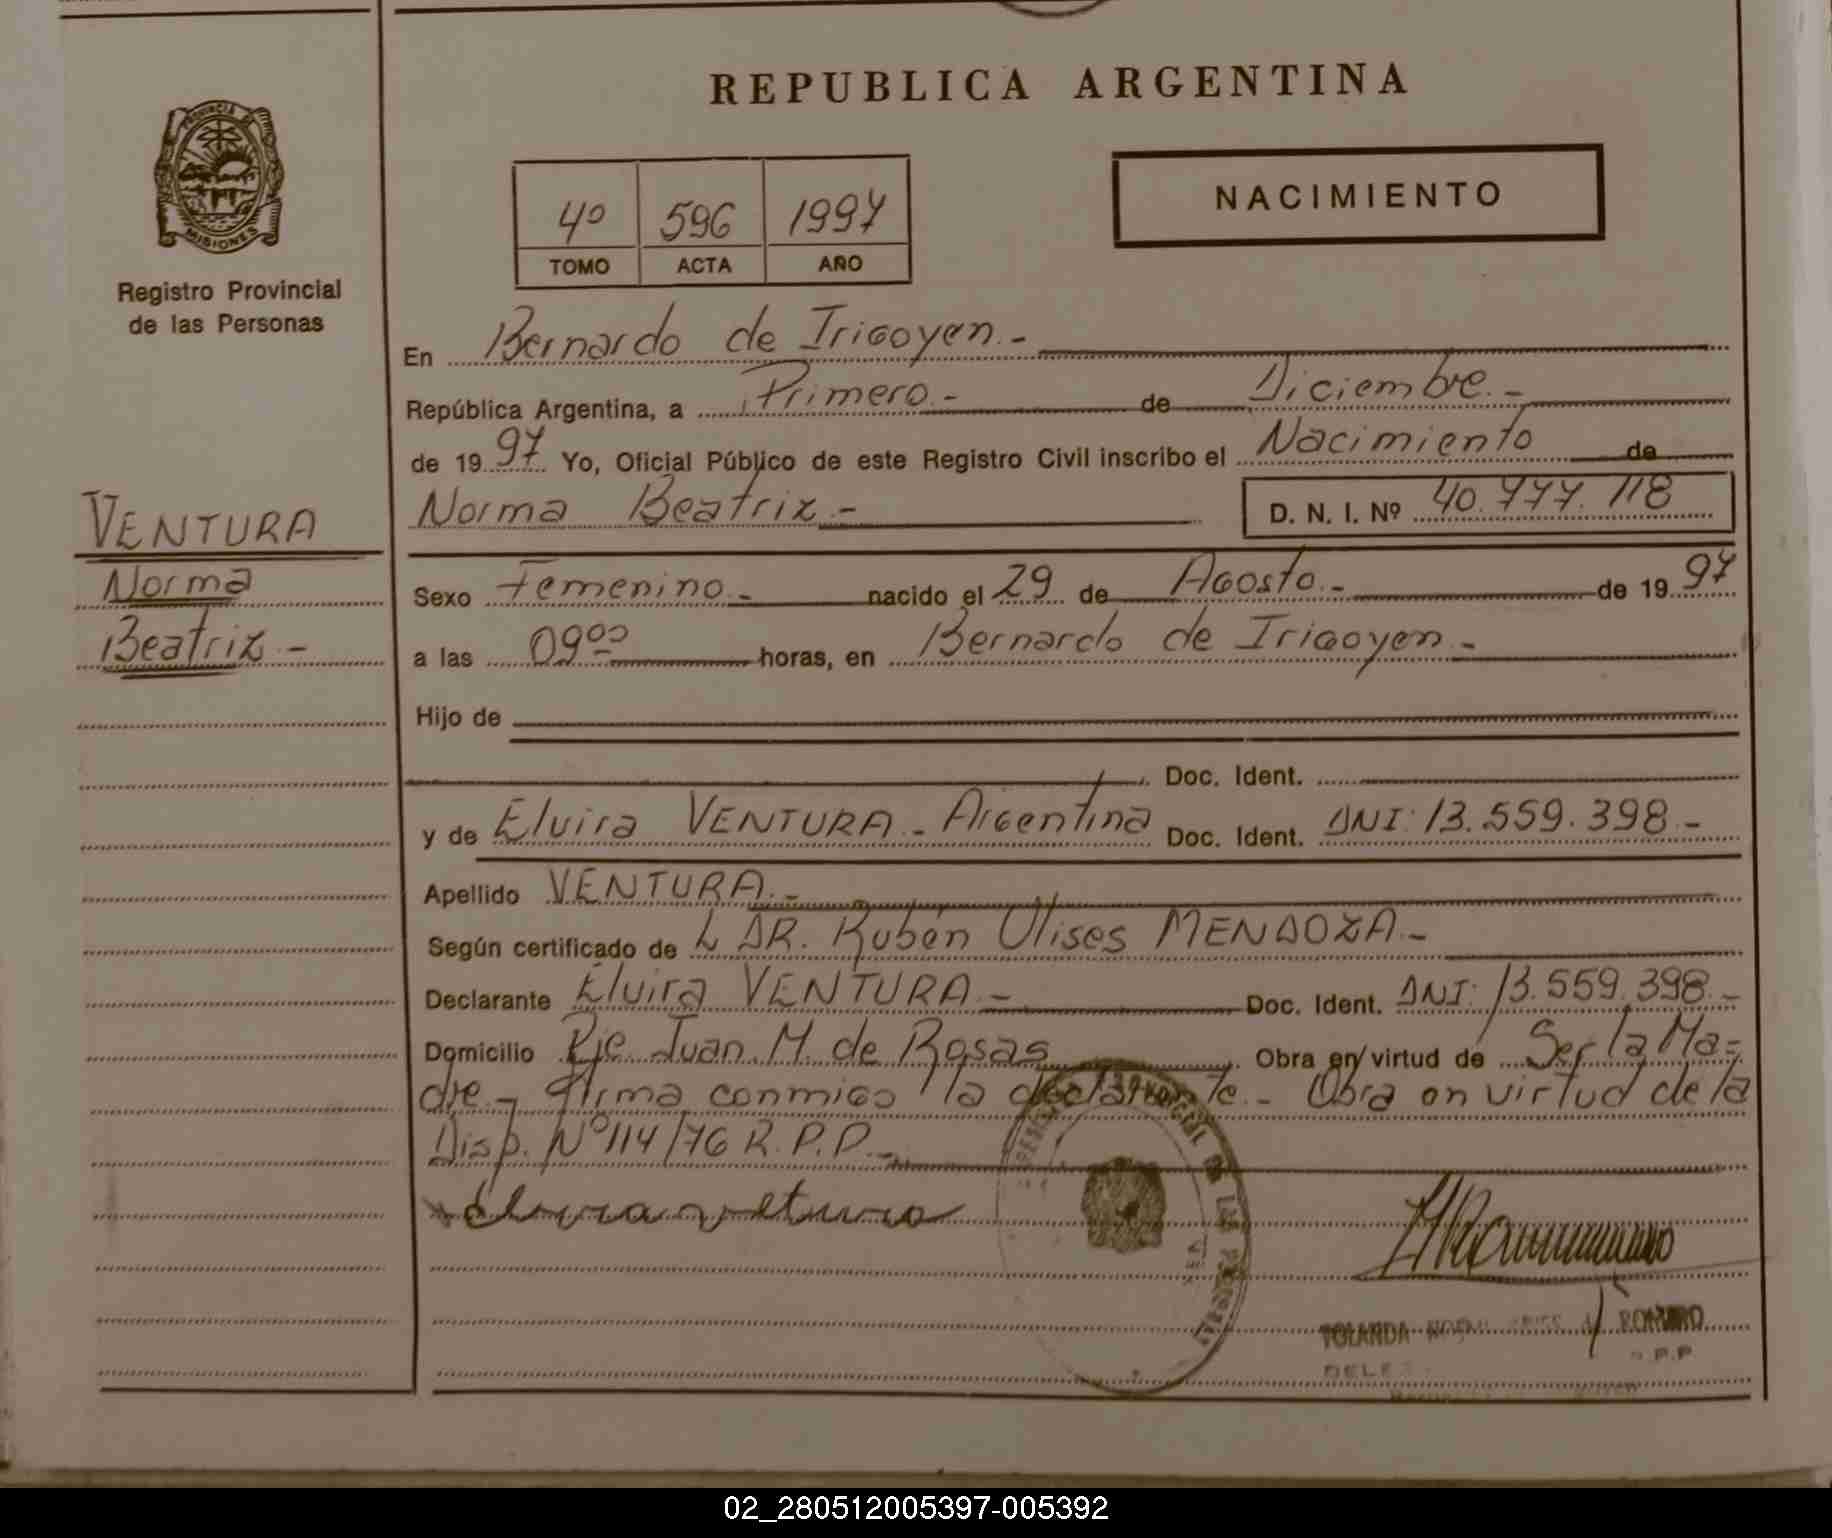 REPUBLICA ARGENTINA
PROVINCIA DE
MISIONES
Registro Provincial
de las Personas
4º 596 1997
TOMO ACTA AÑO
NACIMIENTO
En Bernardo de Irigoyen.-
República Argentina, a Primero.- de Diciembre.-
de 1997 Yo, Oficial Público de este Registro Civil inscribo el Nacimiento de
Norma Beatriz.- D. N. I. Nº 40.777.118
VENTURA
Norma
Beatriz.-
Sexo Femenino.- nacido el 29 de Agosto.- de 1997
a las 09ºº horas, en Bernardo de Irigoyen.-
Hijo de
Doc. Ident.
y de Elvira VENTURA.- Argentina Doc. Ident. DNI: 13.559.398.-
Apellido VENTURA.-
Según certificado de L DR. Rubén Ulises MENDOZA.-
Declarante Elvira VENTURA.- Doc. Ident. DNI: 13.559.398.-
Domicilio Pje. Juan M. de Rosas Obra en virtud de Ser la Ma-
dre.- Firma conmigo la declarante.- Obra en virtud de la
Disp. Nº 114/76 R.P.P.-
PROVINCIAL DE LAS PERSONAS
YOLANDA ROMERO